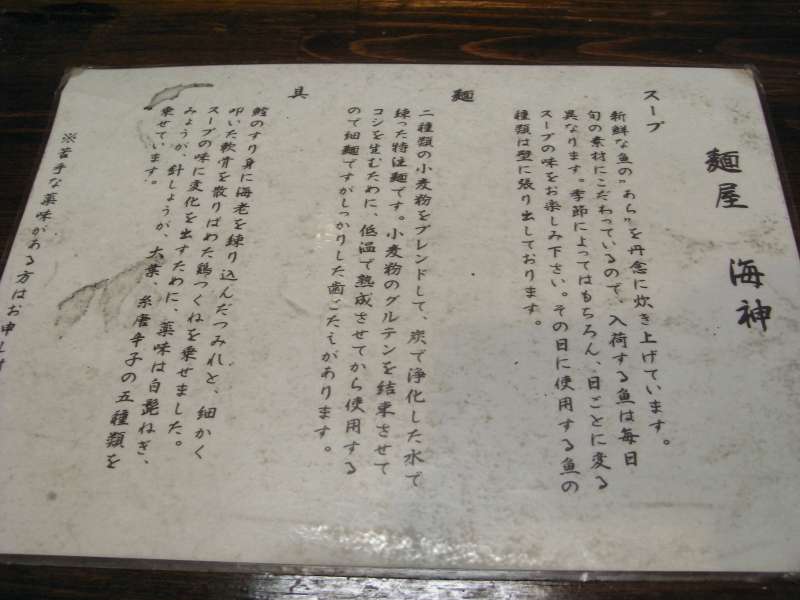 麺屋 海神
スープ
新鮮な魚の"あら"を丹念に炊き上げています。
旬の素材にこだわっているので、入荷する魚は毎日
異なります。季節によってはもちろん、日ごとに変る
スープの味をお楽しみ下さい。その日に使用する魚の
種類は壁に張り出しております。
麺
二種類の小麦粉をブレンドして、炭で浄化した水で
練った特注麺です。小麦粉のグルテンを結束させて
コシを生むために、低温で熟成させてから使用する
ので細麺ですがしっかりした歯ごたえがあります。
具
鱈のすり身に海老を練り込んだつみれと、細かく
叩いた軟骨を散りばめた鶏つくねを乗せました。
スープの味に変化を出すために、薬味は白髭ねぎ、
みょうが、針しょうが、大葉、糸唐辛子の五種類を
乗せています。
※苦手な薬味がある方はお申し付